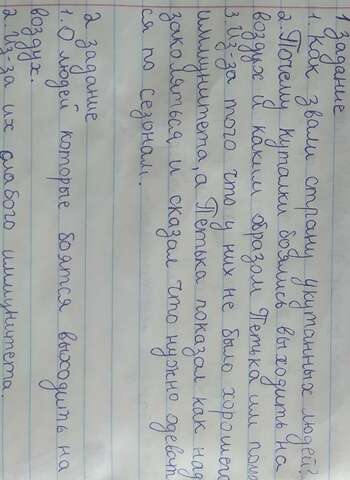 1 задание
1. Как звали страну укутанных людей?
2. Почему куталки боялись выходить на
воздух и каким образом Петька им пом
3 Из-за того что у них не было хорошего
иммунитета, а Петька показал как над
заколяться и сказал что нужно одеват
ся по сезонам.
2 задание
1. О людей которые боятся выходить на
воздух.
2. Из-за их слабого иммунитета.